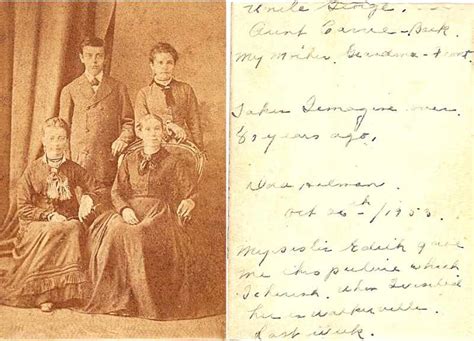 Uncle George
Aunt Carrie - Back.
My Mother, Grandma - Front.
Taken I imagine over
years ago.
Holman
Oct 26th / 1953.
My sister Edith gave
me this picture which
I cherish. When I visited
her in Walkerville.
last week.